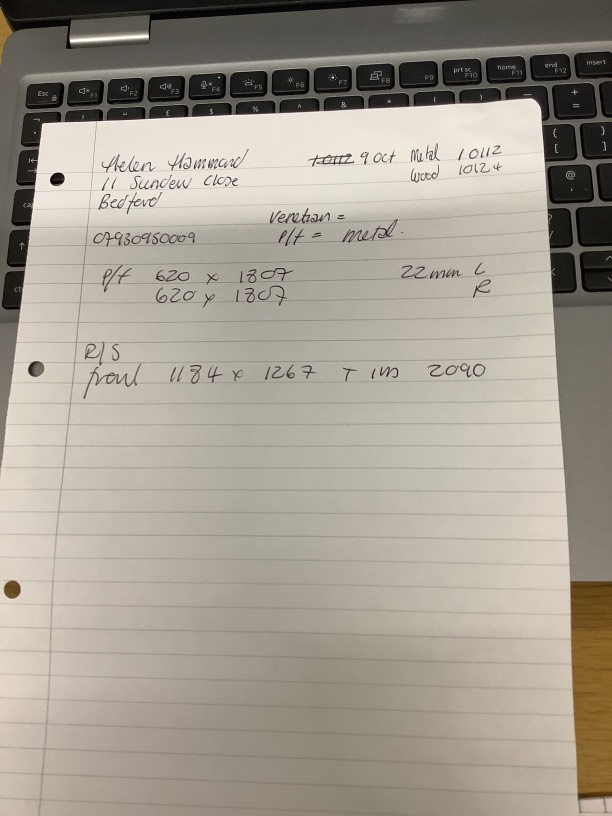 Helen Hammond
11 Sundew Close
Bedford
07930950009
10112 9 Oct Metal 10112
Wood 10124
Venetian =
P/f = metal.
P/f 620 x 1807 22mm L
620 x 1807 R
R/S
front 1184 x 1267 T 1m 2090
Esc F1 F2 F3 F4 F5 F6 F7 F8 F9 prt sc F10 home F11 end F12 insert